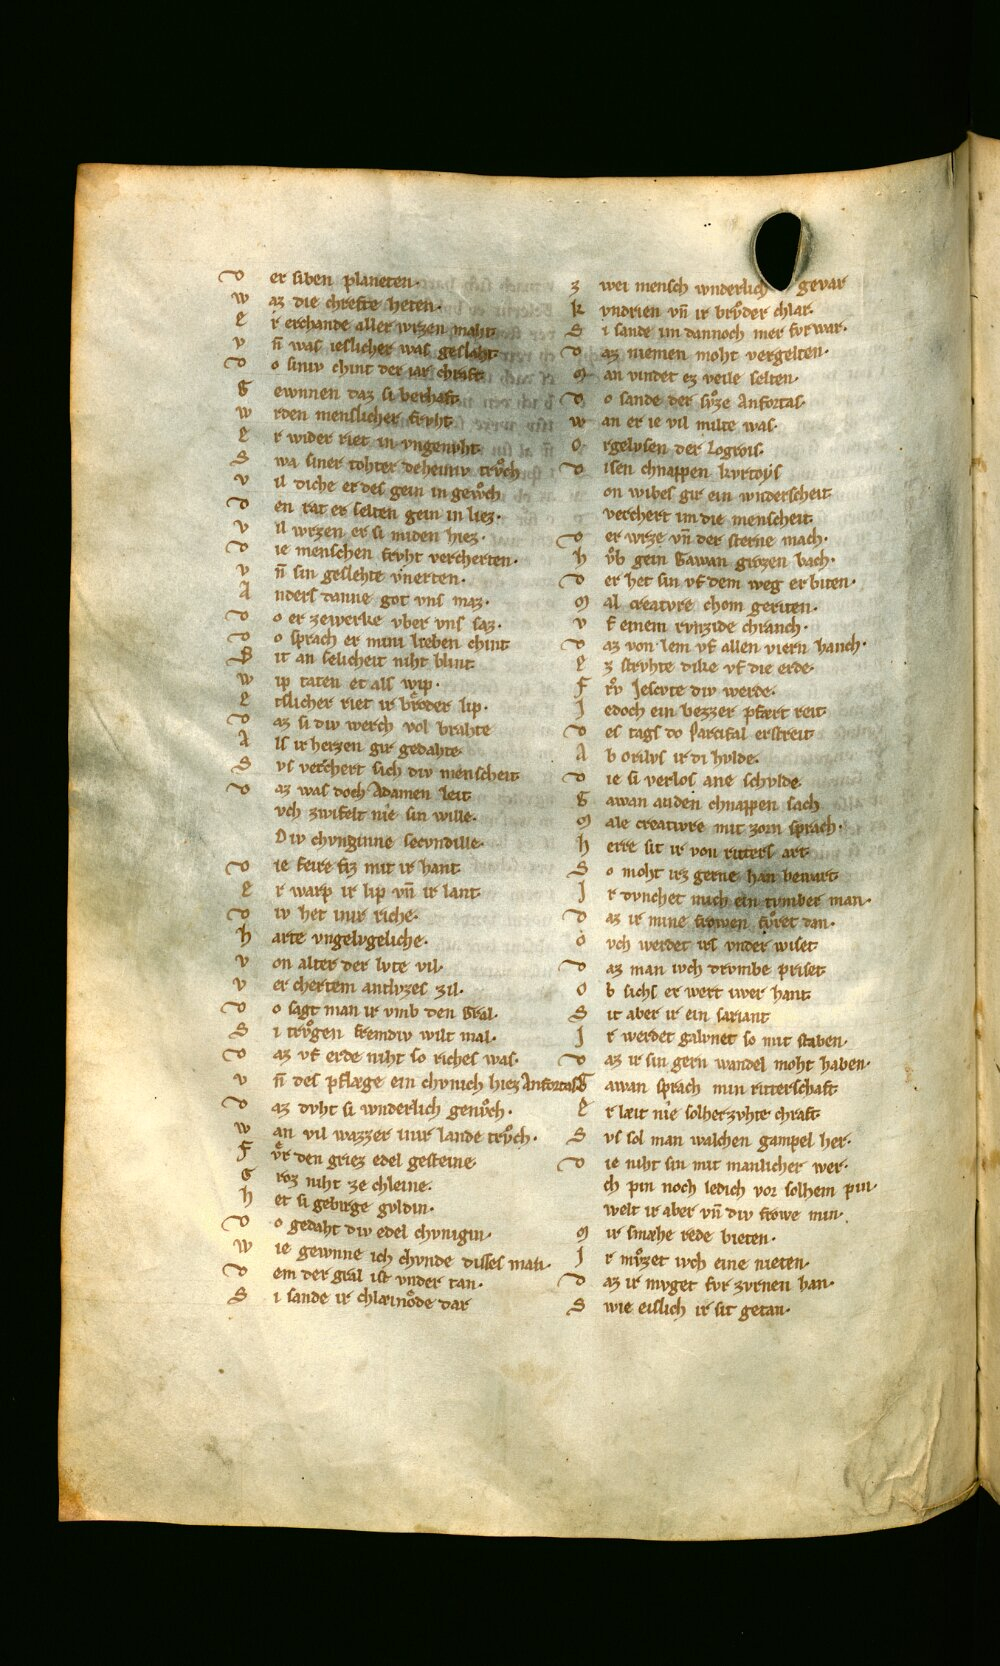 D er siben planeten·
W az die chrefte heten·
E r erchande aller wrzen maht
V n̄ was ieslicher was geslaht·
D o siniv chint der iar chraft
G ewnnen daz si berhaft
W rden menslicher frvht
E r wider riet in vngenvht·
S wa siner tohter deheiniv trv̊ch
V il diche er des gein in gewv̊ch
D en rat er selten gein in liez·
V il wrzen er si miden hiez·
D ie menschen frvht vercherten·
V n̄ sin geslehte vnerten·
A nders danne got vns maz·
D o er zewerke vber vns saz·
D o sprach er miniv lieben chint
B it an selicheit niht blint
W ip taten et als wip·
E tslicher riet ir brͦder lip·
D az si div werch vol brahte
A ls ir herzen gir gedahte
S vs verchert sich div menscheit
D az was doch Adamen leit
vch zwifelt nie sin wille·
Div chvnginne secvndille·
D ie feirefiz mit ir hant
E r warp ir lip vn̄ ir lant
D iv het inir riche·
H arte vngelvgeliche·
V on alter der lvte vil·
V er chertem antlvzes zil·
D o sagt man ir vmb den Gral·
S i trv̊gen fremdiv wilt mal·
D az vf erde niht so riches was·
V n̄ des pflæge ein chvnich hiez Anfortas
D az dvht si wnderlich genv̊ch·
W an vil wazzer inir lande trv̊ch·
F v̊r den griez edel gesteine
G roz niht ze chleine·
H et si gebirge gvldin·
D o gedaht div edel chvnigin·
W ie gewnne ich chvnde disses man·
D em der gral ist vnder tan·
S i sande ir chlæinoͤde dar
Z wei mensch wnderlich gevar
K vndrien vn̄ ir brv̊der chlar·
S i sande im dannoch mer fvr war·
D az niemen moht vergelten·
M an vindet ez veile selten·
D o sande der sv̊ze Anfortas·
W an er ie vil milte was·
O rgelvsen der Logrois·
D isen chnappen kvrtoys
on wibes gir ein wnderscheit
verchert im die menscheit
D er wrze vn̄ der sterne mach·
H v̊b gein Gawan grozen bach·
D er het sin vf dem weg erbiten·
M al creatvre chom geriten·
V f einem rvnzide chranch·
D az von lem vf allen viern hanch·
E z strvhte dike vf die erde·
F rv̊ Jescvte div werde·
J edoch ein bezzer pfært reit
D es tags do Parcifal erstreit
A b orilvs ir di hvlde·
D ie si verlos ane schvlde·
G awan anden chnappen sach
M ale creatvre mit zorn sprach·
H erre sit ir von ritters art·
S o moht irz gerne han bewart
J r dvnchet mich ein tvmber man·
D az ir mine frowen fv̊ret dan·
O vch werdet irs vnder wiset
D az man ivch drvmbe priset
O b sichs er wert iwer hant
S it aber ir ein sariant
J r werdet galvnet so mit staben·
D az ir sin gern wandel moht haben·
G awan sprach min ritterschaft
E r læit nie solher zvhte chraft
S vs sol man walchen gampel her·
D ie niht sin mit manlicher wer·
ch pin noch ledich vor solhem pin·
welt ir aber vn̄ div frowe min·
M ir smæhe rede bieten·
J r mv̊zet ivch eine nieten·
D az ir mvget fvr zvrnen han·
S wie eislich ir sit getan·